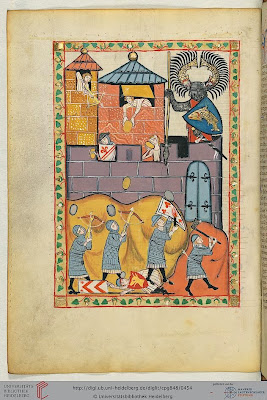 UNIVERSITÄTS-
BIBLIOTHEK
HEIDELBERG
http://digi.ub.uni-heidelberg.de/diglit/cpg848/0454
© Universitätsbibliothek Heidelberg